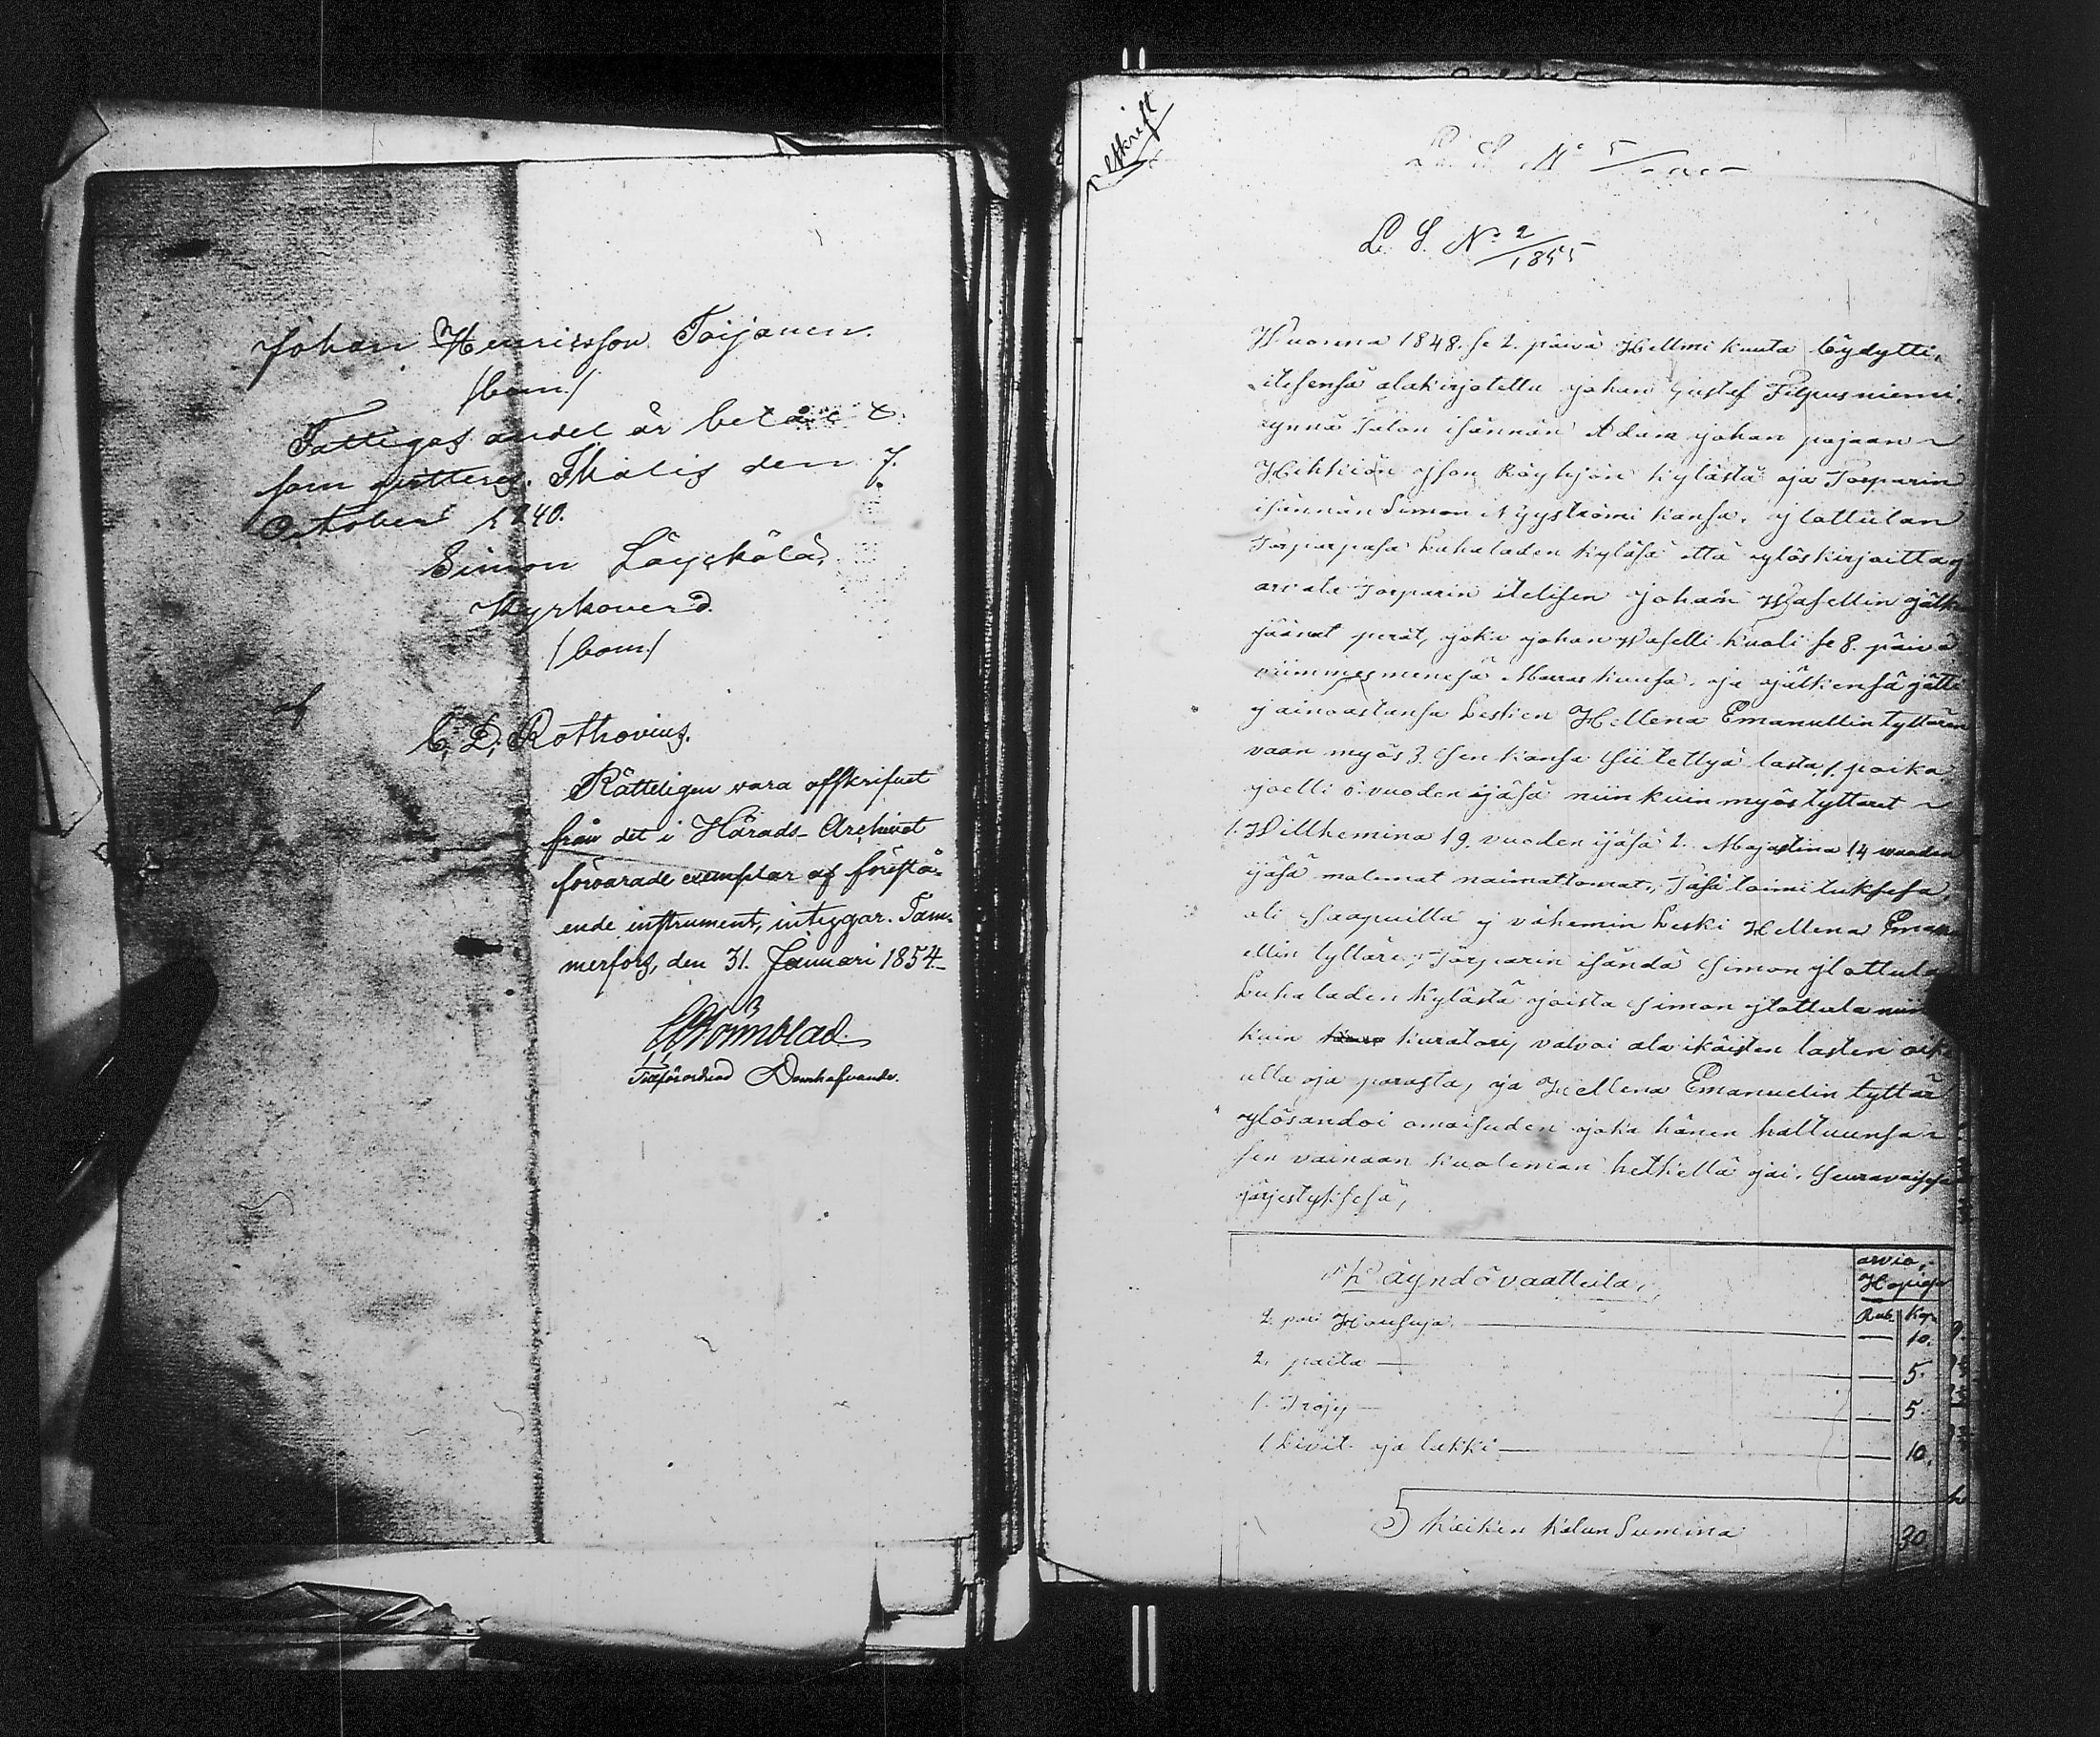 Johan Henricsson Toijanen.
/bom./
Fattigas andel är betalt
som qvitteras. Thalis den 7.
October 1840.
Simon Löyckölä,
Kyrkowerd.
/bom./
C. D. Rothovius.
Rätteligen vara afskrifvet
från det i Härads-Archivet
förvarade exemplar af förestå-
ende instrument, intyggar. Tam-
merfors, den 31. Januari 1854.
Tillförordnad Domhafvande.
Utskrift
L. S. No 2/1855
Wuonna 1848. se 2. päivä Hellmi kuuta löydytti,
itesensä alakirjotettu Johan Gustef Filpusniemi,
ynnä Talon isännän Adam Johan pajaan
Hihkiön Ison Röykjön kylästä ja Torparin
isännän Simon Nyyströmi kansa, Ylottulan
Torparpasa Luhaladen kyläsä että ylöskirjoittaa
arvata Torparin itelisen Johan Wasellin jälk
jäänet perät, joka Johan Waselli kuoli se 8. päivä
viimmesmenesä Marras kuusa, ja jälkensä jätti
j ainoastansa Lesken Hellena Emanullin tyttären
vaan myös 3. Sen kansa Siitettyä lasta, 1. poika
Joelli 6. vuoden ijäsä niin kuin myös tyttaret
1. Willhemina 19. vuoden ijäsä 2. Majastina 14 wuoden
ijäsä molemat naimattomat, Täsä toimituksesa
oli Saapuilla j vähemin Leski Hellena Eman
ellin tyttäre, Torparin isändä Simon Ylottula
Luhaladen kylästä joista Simon Ylottula niin
kuin kuratori, valvoi ala ikäisten lasten oik
utta ja parasta, ja Hellena Emanuelin tyttär
ylösandoi omaisuden joka hänen haltuunsa
sen vainaan kuoleman hetkellä jäi. Seuravaisesa
järjestyksesä,
Käyndövaatteita,
arvio,
Hopiasa
Rub. Kop.
2. pari Housuja, 10.
2. paita 5.
1. Tröjy 5.
1 Liivit ja lakki 10.
Kaiken kalun Summa 30